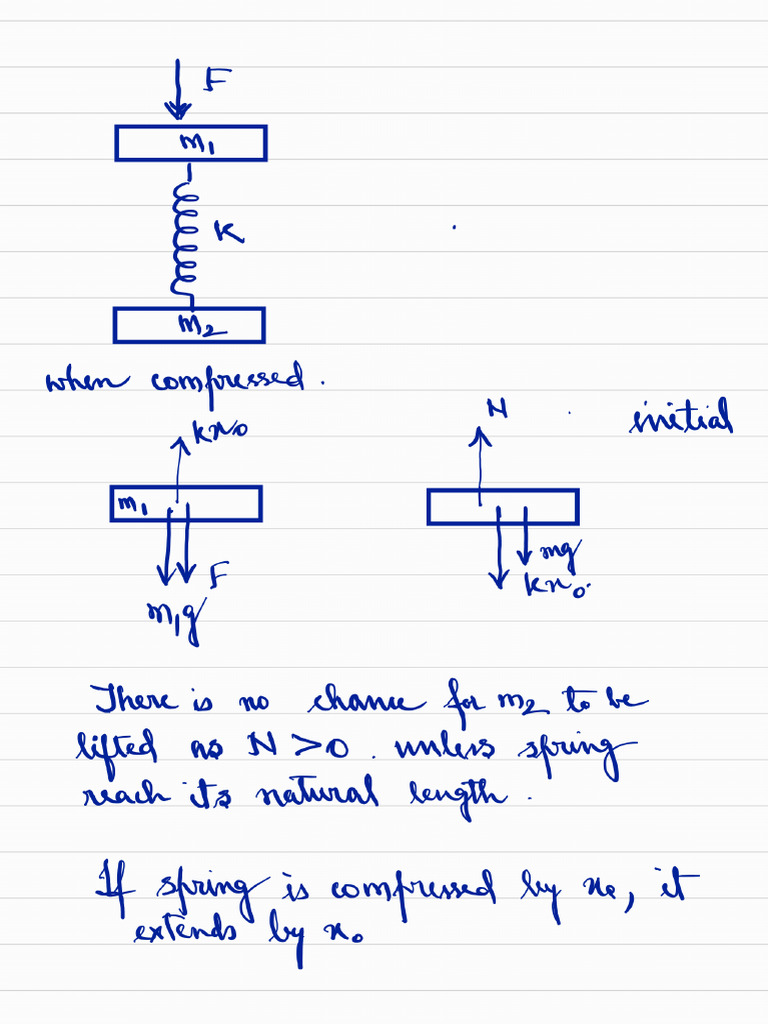 F
m₁
K
m₂
when compressed.
kx₀
N
initial
m₁
F
m₁g
mg
kx₀
There is no chance for m₂ to be
lifted as N >0. unless spring
reach its natural length.
If spring is compressed by x₀, it
extends by x₀